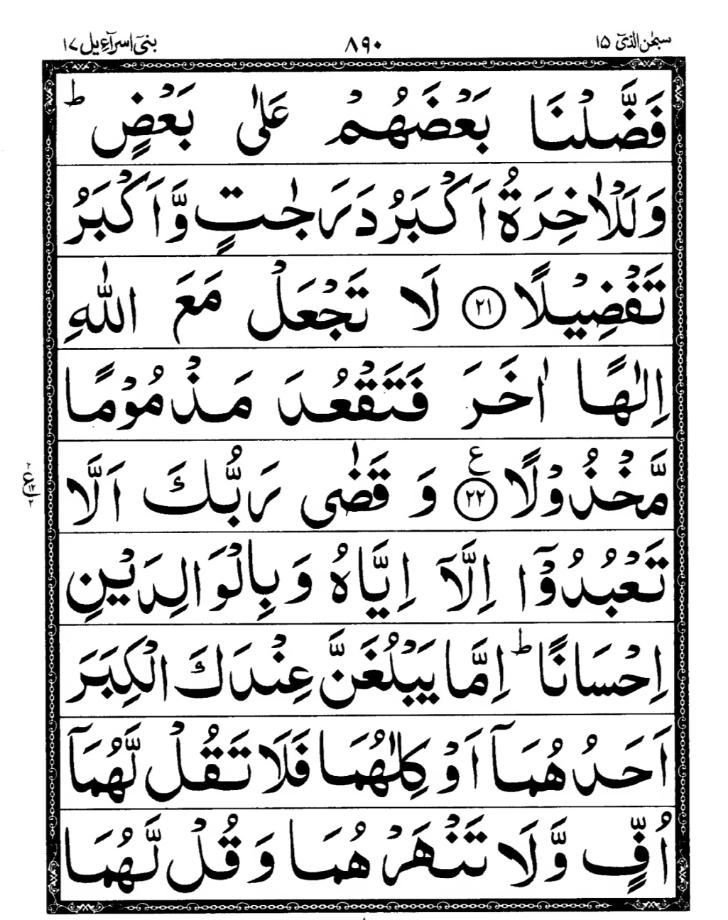 سبحٰن الذیٓ ۱۵ ۸۹۰ بنیٓ اسرآءیل ۱۷
فَضَّلْنَا بَعْضَهُمْ عَلٰی بَعْضٍ ؕ
وَلَلْاٰخِرَةُ اَكْبَرُ دَرَجٰتٍ وَّاَكْبَرُ
تَفْضِیْلًا ﴿۲۱﴾ لَا تَجْعَلْ مَعَ اللّٰهِ
اِلٰهًا اٰخَرَ فَتَقْعُدَ مَذْمُوْمًا
مَّخْذُوْلًا ﴿۲۲﴾ ع وَ قَضٰی رَبُّكَ اَلَّا
تَعْبُدُوْۤا اِلَّاۤ اِیَّاهُ وَبِالْوَالِدَیْنِ
اِحْسَانًا ؕ اِمَّا یَبْلُغَنَّ عِنْدَكَ الْكِبَرَ
اَحَدُهُمَاۤ اَوْ كِلٰهُمَا فَلَا تَقُلْ لَّهُمَاۤ
اُفٍّ وَّلَا تَنْهَرْهُمَا وَقُلْ لَّهُمَا